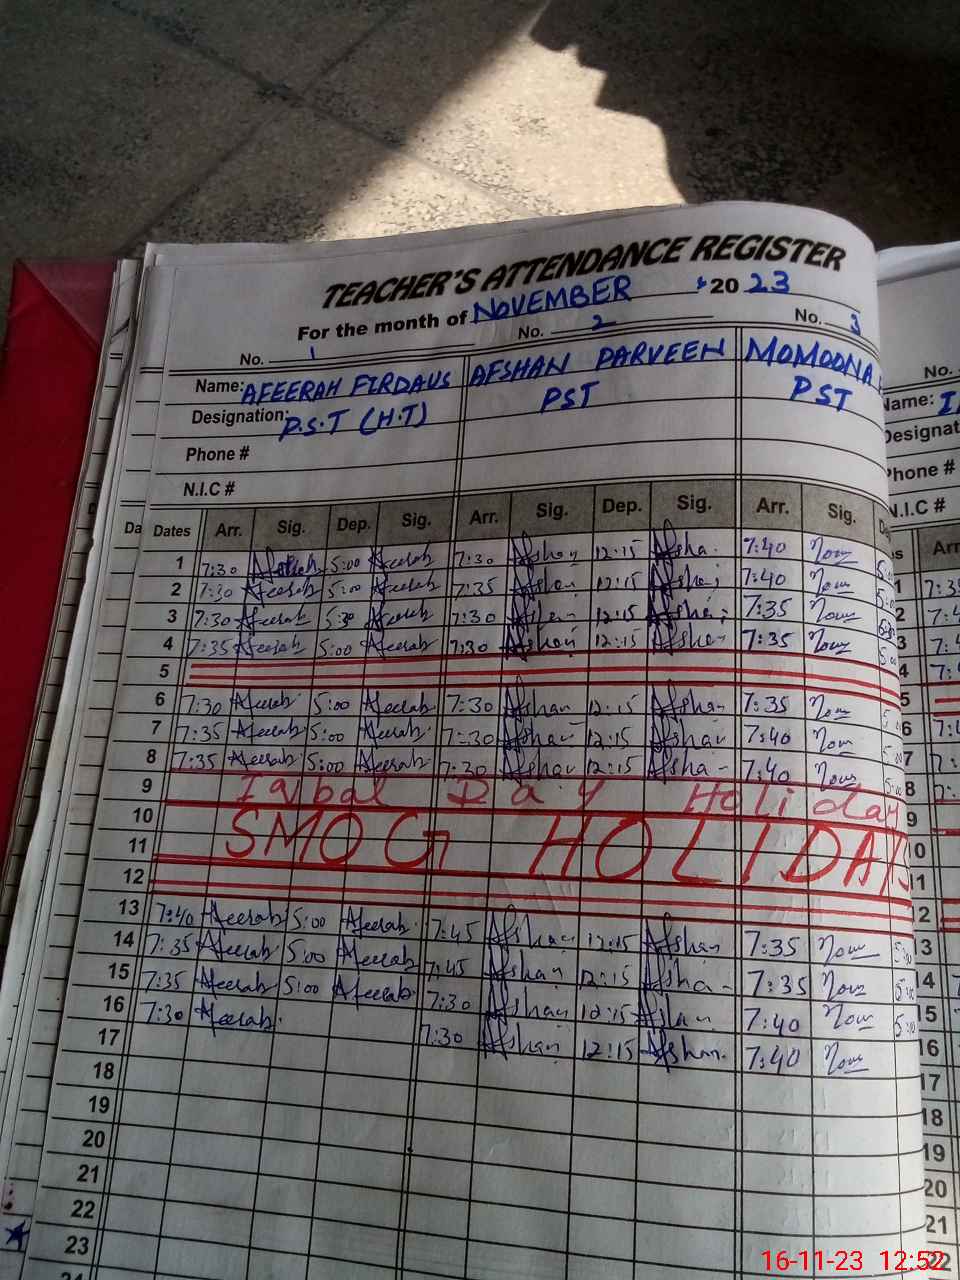 TEACHER'S ATTENDANCE REGISTER
For the month of NOVEMBER 2023
No. 1 No. 2 No. 3 No.
Name: AFEERAH FIRDAUS AFSHAN PARVEEN MOMOONA Name:
Designation: P.S.T (H.T) PST PST
Phone # Phone #
N.I.C # N.I.C #
Dates Arr. Sig. Dep. Sig. Arr. Sig. Dep. Sig. Arr. Sig.
1 7:30 5:00 Afeerah 7:30 Afshan 12:15 Afsha 7:40
2 7:30 Afeerah 5:00 Afeerah 7:35 Afshan 12:15 Afshan 7:40
3 7:30 Afeerah 5:30 Afeerah 7:30 Afshan 12:15 Afshan 7:35
4 7:35 Afeerah 5:00 Afeerah 7:30 Afshan 12:15 Afshan 7:35
5
6 7:30 Afeerah 5:00 Afeerah 7:30 Afshan 12:15 Afshan 7:35
7 7:35 Afeerah 5:00 Afeerah 7:30 Afshan 12:15 Afshan 7:40
8 7:35 Afeerah 5:00 Afeerah 7:30 Afshan 12:15 Afsha 7:40
9 Iqbal Day Holiday
10 SMOG HOLIDAYS
11
12
13 7:40 Afeerah 5:00 Afeerah 7:45 Afshan 12:15 Afshan 7:35
14 7:35 Afeerah 5:00 Afeerah 7:45 Afshan 12:15 Afsha 7:35
15 7:35 Afeerah 5:00 Afeerah 7:30 Afshan 12:15 Afshan 7:40
16 7:30 Afeerah 7:30 Afshan 12:15 Afshan 7:40
17
18
19
20
21
22
23
16-11-23 12:52